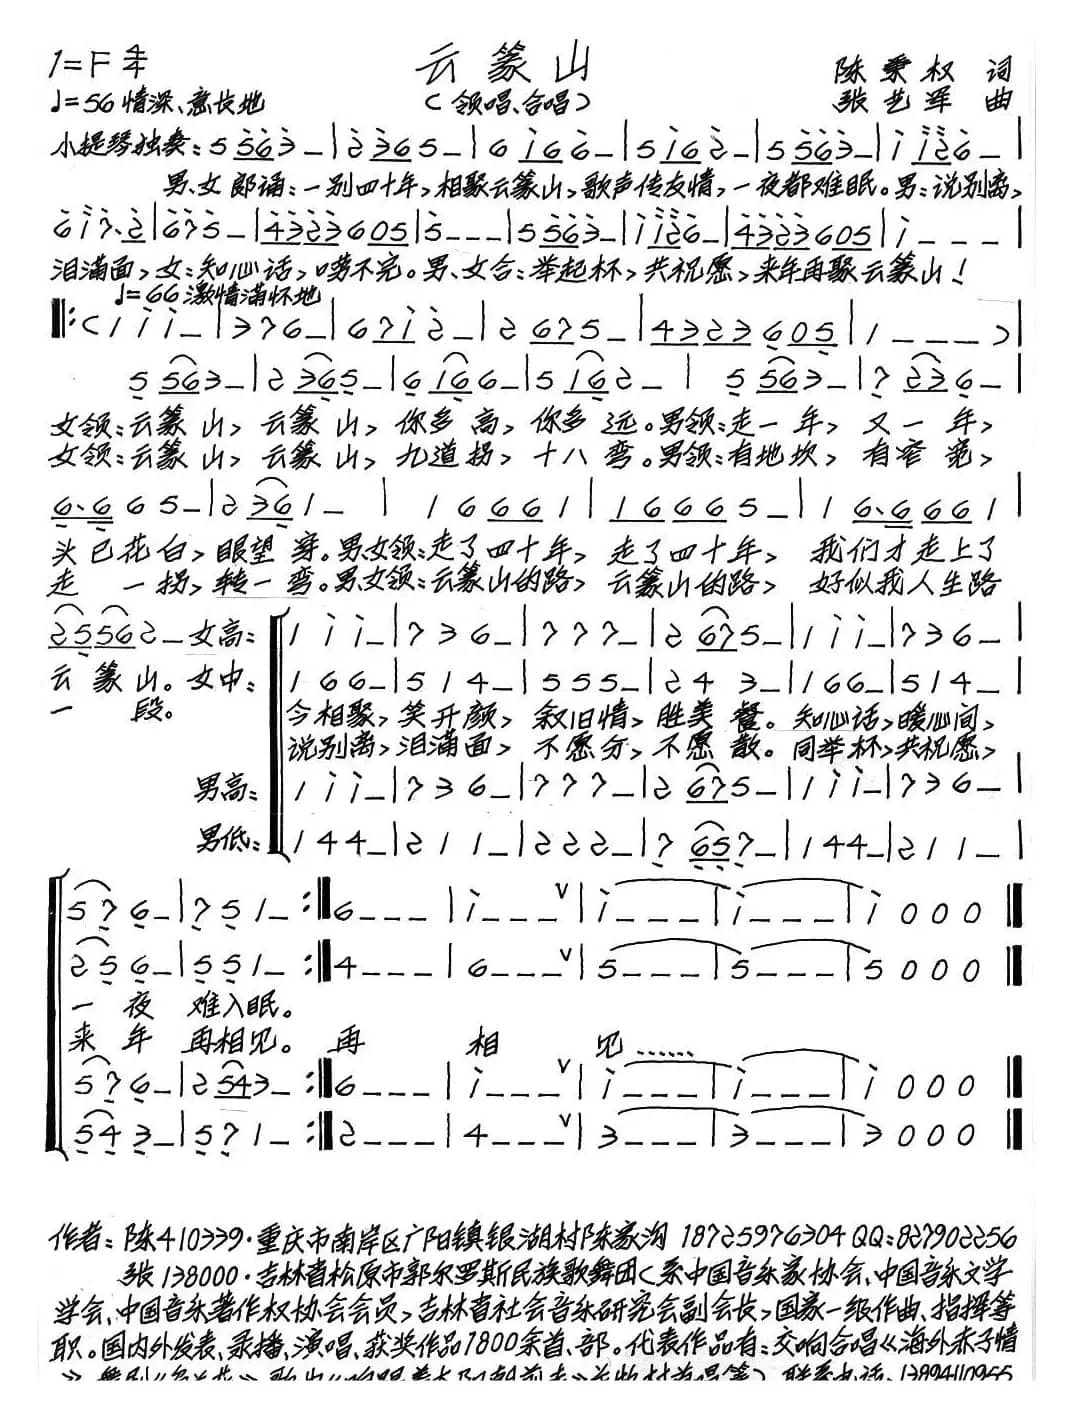 1=F 4/4
云篆山
陈秉权 词
♩=56 情深、意长地
（领唱、合唱）
张艺军 曲
小提琴独奏:5 563 _|2 365 _|6 i66 _|5 i62 _|5 563 _|i ii26 _|
男、女郎诵:一别四十年,相聚云篆山,歌声传友情,一夜都难眠。男:说别离,
6i7.2|675 _|4323605|5 _ _ _|5563 _|ii26 _|4323605|i _ _ _|
泪满面,女:知心话,唠不完。男、女合:举起杯,共祝愿,来年再聚云篆山!
♩=66 激情满怀地
‖:(1 i i _|376 _|67i2 _|2675 _|4323605|1 _ _ _)|
5 563 _|2 365 _|6 166 _|5 162 _| 5 563 _|7 236 _|
女领:云篆山,云篆山,你多高,你多远。男领:走一年,又一年,
女领:云篆山,云篆山,九道拐,十八弯。男领:有地坎,有窄宽,
6.665 _|2361 _| 16661|16665 _|16.6661|
头已花白,眼望穿。男女领:走了四十年,走了四十年,我们才走上了
走一拐,转一弯。男女领:云篆山的路,云篆山的路,好似我人生路
25562 _ 女高:1 i i _|736 _|777 _|2675 _|1 i i _|736 _|
云篆山。女中:166 _|514 _|555 _|243 _|166 _|514 _|
一段。
今相聚,笑开颜,叙旧情,胜美餐。知心话,暖心间,
说别离,泪满面,不愿分,不愿散。同举杯,共祝愿,
男高:1 i i _|736 _|777 _|2675 _|1 i i _|736 _|
男低:144 _|211 _|222 _|7657 _|144 _|211 _|
576 _|751 _:‖6 _ _ _|i _ _ _∨|i _ _ _|i _ _ _|i 0 0 0‖
256 _|551 _:‖4 _ _ _|6 _ _ _∨|5 _ _ _|5 _ _ _|5 0 0 0‖
一夜难入眠。
来年再相见。再相见……
576 _|2543 _:‖6 _ _ _|i _ _ _∨|i _ _ _|i _ _ _|i 0 0 0‖
543 _|571 _:‖2 _ _ _|4 _ _ _∨|3 _ _ _|3 _ _ _|3 0 0 0‖
作者:陈410339·重庆市南岸区广阳镇银湖村陈家沟 18725976304 QQ:827902256
张138000·吉林省松原市郭尔罗斯民族歌舞团(系中国音乐家协会、中国音乐文学
学会、中国音乐著作权协会会员,吉林省社会音乐研究会副会长,国家一级作曲、指挥等
职。国内外发表、录播、演唱、获奖作品1800余首、部。代表作品有:交响合唱《海外赤子情